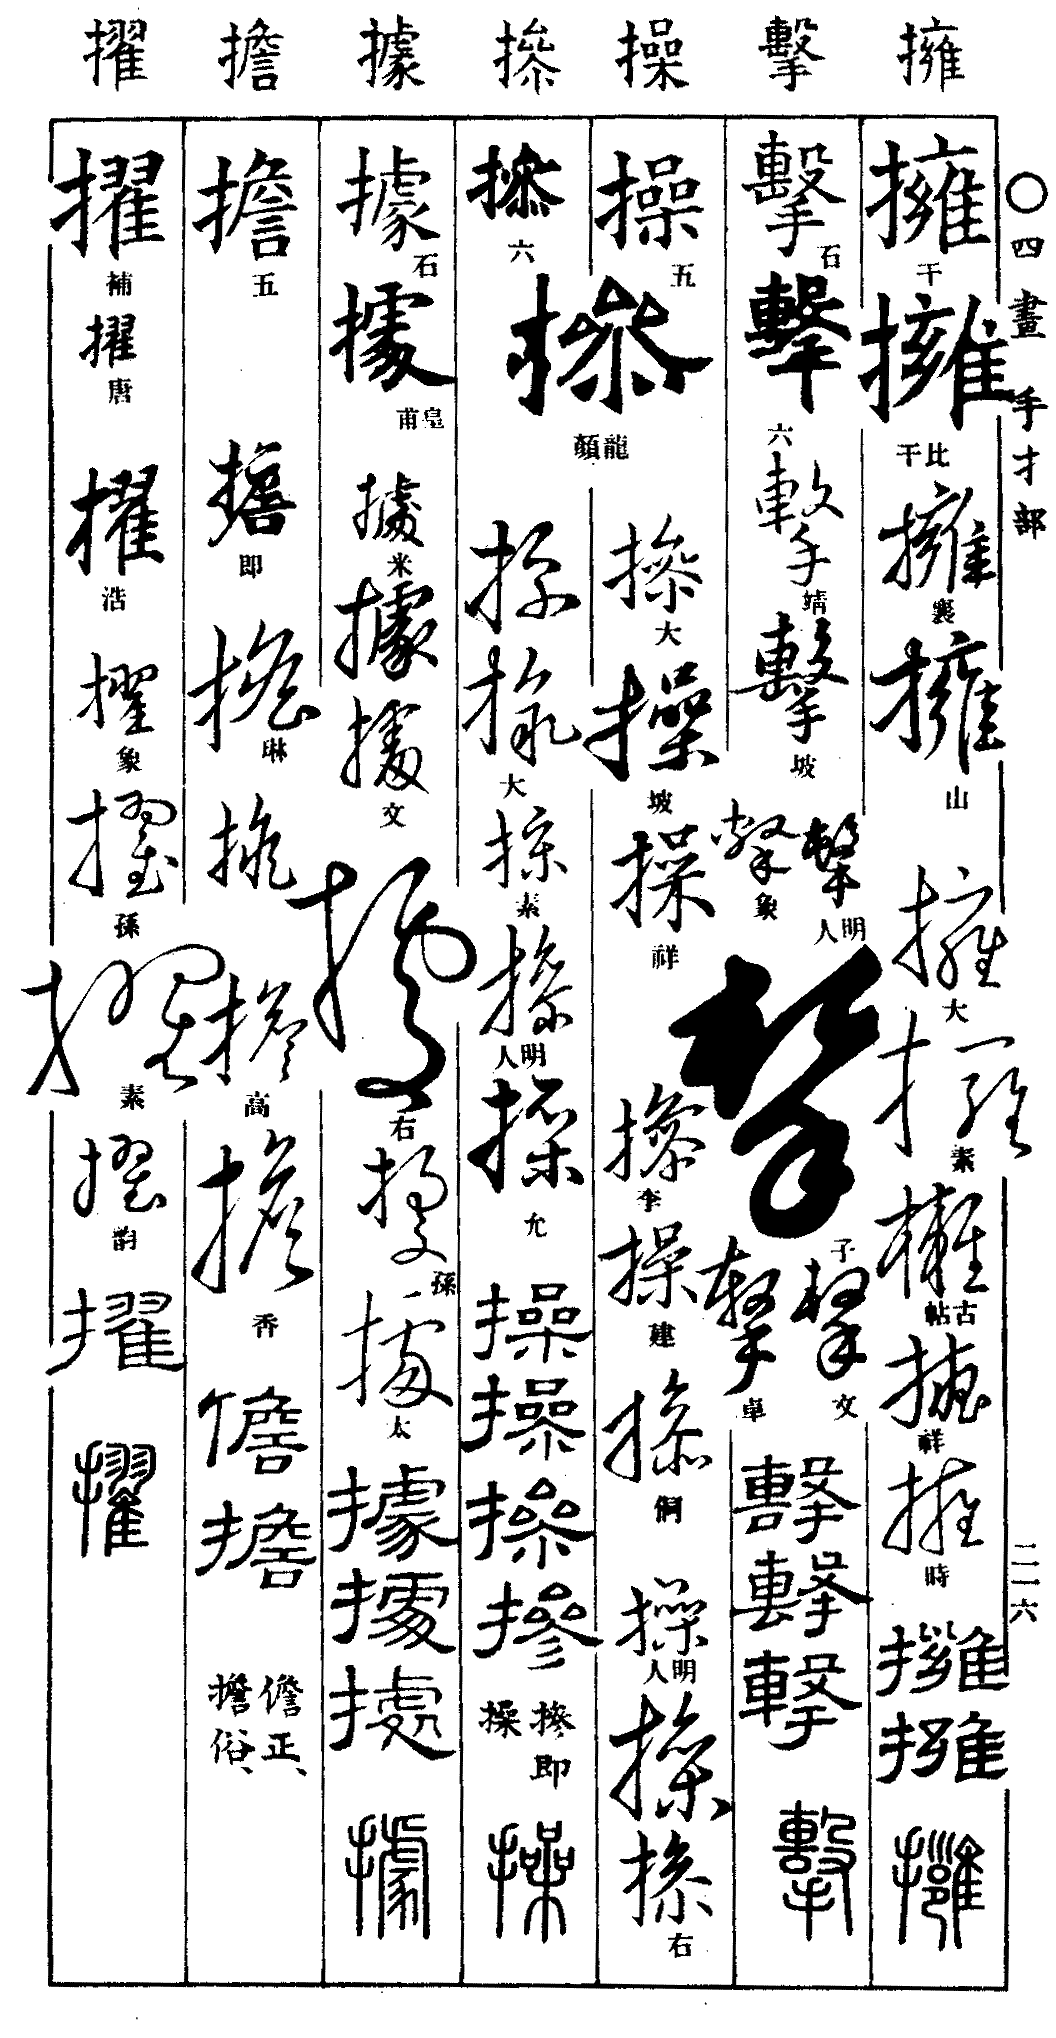 擁 擊 操 摻 據 擔 擢
〇四畫 手才部
二一六
擁
干
擁
比干
擁
襄
擁
山
擁
大
擁
素
擁
古帖
擁
祥
擁
時
擁
擁
擁
擊
石
擊
六
擊
靖
擊
坡
擊
明人
擊
象
擊
子
擊
文
擊
卓
擊
擊
擊
擊
操
五
操
大
操
坡
操
祥
操
李
操
建
操
侗
操
明人
操
操
右
摻
六
摻
龍顏
操
操
大
操
素
操
明人
操
允
操
操
操
摻
摻即
操
操
據
石
據
皇甫
據
米
據
據
文
據
右
據
孫
據
太
據
據
據
據
擔
五
擔
即
擔
琳
擔
擔
高
擔
香
儋
擔
儋正、
擔俗、
擢
補
擢
唐
擢
浩
擢
象
擢
孫
擢
素
擢
韵
擢
擢